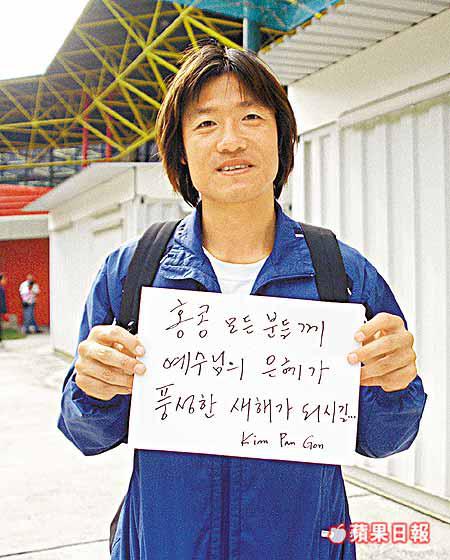 홍콩 모든 분들께
예수님의 은혜가
풍성한 새해가 되시길...
Kim Pan Gon
蘋果日報